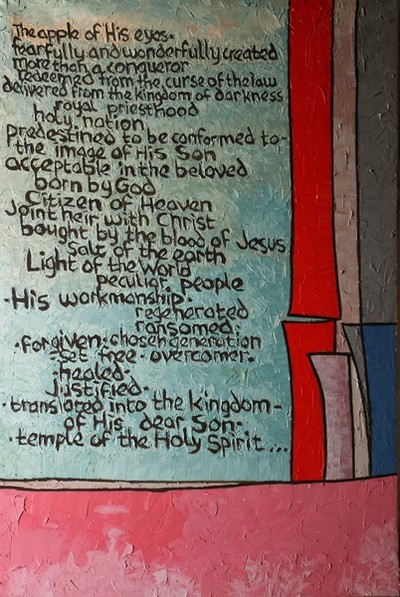 The apple of His eyes.
fearfully and wonderfully created
more than a conqueror
redeemed from the curse of the law
delivered from the kingdom of darkness
royal priesthood
holy nation
predestined to be conformed to-
the image of His Son
acceptable in the beloved
born by God
Citizen of Heaven
Joint heir with Christ
bought by the blood of Jesus
Salt of the earth
Light of the World
peculiar people
•His workmanship•
regenerated
ransomed•
•forgiven•chosen generation
•set free•overcomer•
•healed•
justified•
•translated into the kingdom-
of His dear Son•
•temple of the Holy Spirit...